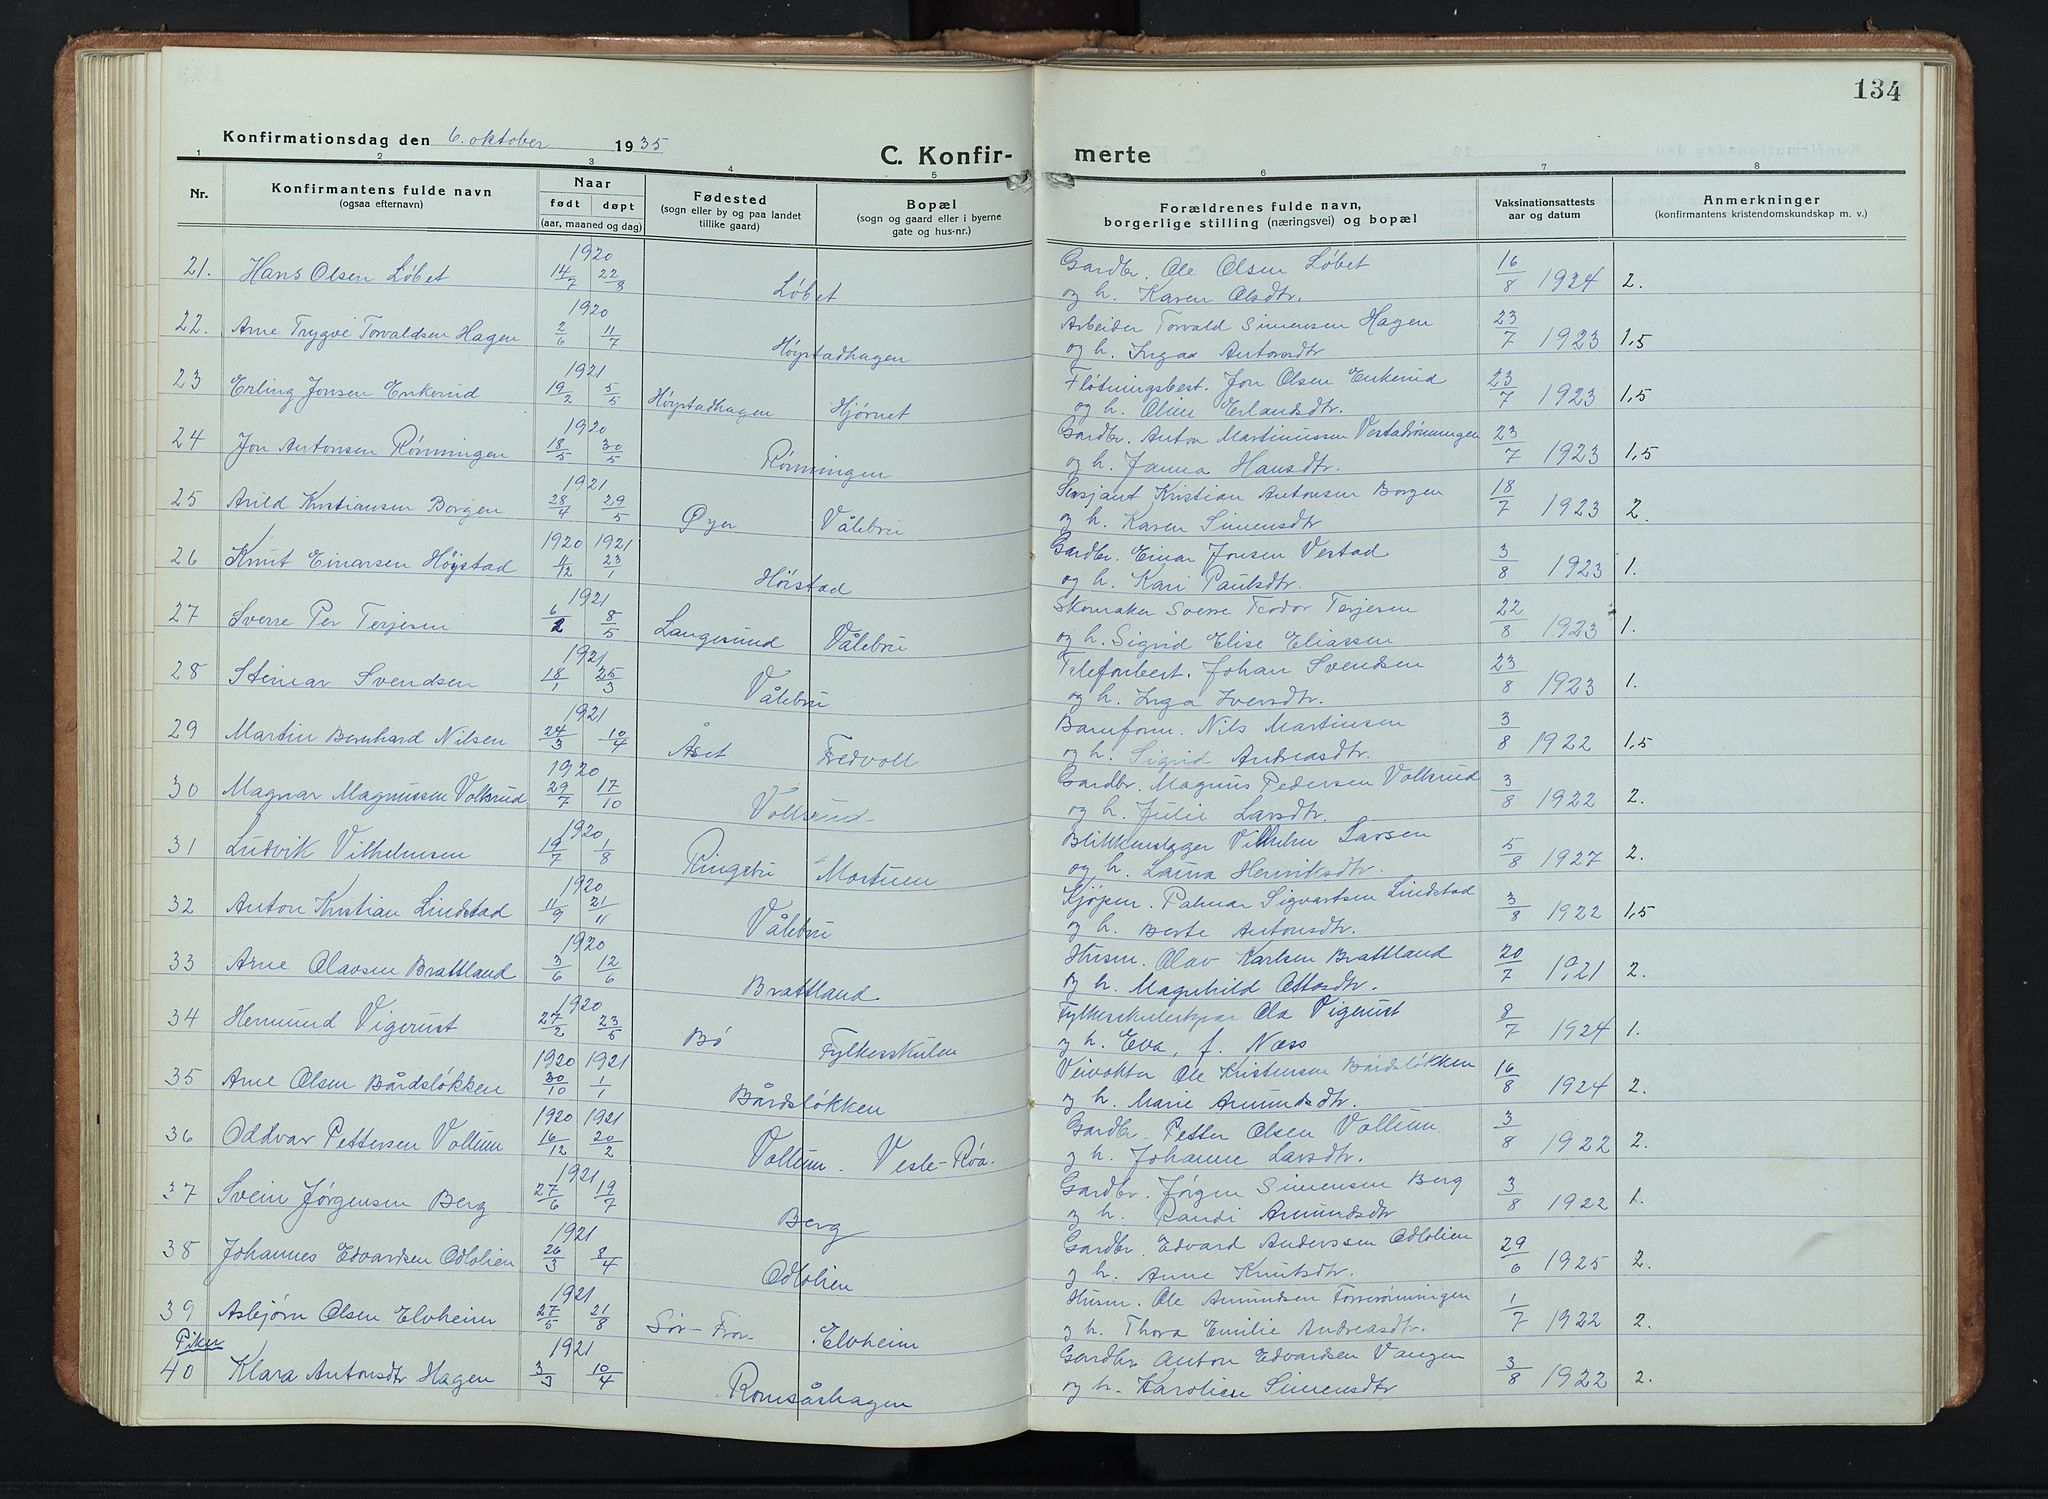 134
Konfirmationsdag den 6. oktober 1935
C. Konfir- merte
1 2 3 4 5 6 7 8
Nr. Konfirmantens fulde navn (ogsaa efternavn) Naar født døpt (aar, maaned og dag) Fødested (sogn eller by og paa landet tillike gaard) Bopæl (sogn og gaard eller i byerne gate og hus-nr.) Forældrenes fulde navn, borgerlige stilling (næringsvei) og bopæl Vaksinationsattests aar og datum Anmerkninger (konfirmantens kristendomskundskap m. v.)
1920 Gardbr. Ole Olsen Løbet
21. Hans Olsen Løbet 14/7 22/8 Løbet og h. Karen Olsdtr. 16/8 1924 2.
1920 Arbeider Torvald Simensen Hagen
22. Arne Trygve Torvaldsen Hagen 2/6 11/7 Høystadhagen og h. Inga Antonsdtr 23/7 1923 1,5
1921 Fløtningsbest. Jon Olsen Enkerud
23 Erling Jonsen Enkerud 19/2 5/5 Høystadhagen Hjørnet og h. Oline Erlandsdtr. 23/7 1923 1,5
1920 Gardbr. Anton Martinussen Vestadrønningen
24 Jon Antonsen Rønningen 18/5 30/5 Rønningen og h. Janna Hansdtr. 23/7 1923 1,5
1921 Sersjant Kristian Antonsen Borgen
25 Arild Kristiansen Borgen 28/4 29/5 Øyer Vålebru og h. Karen Simensdtr 18/7 1923 2.
1920 1921 Gardbr. Einar Jonsen Vestad
26 Knut Einarsen Høystad 11/12 23/1 Høistad og h. Kari Paulsdtr. 3/8 1923 1.
1921 Skomaker Sverre Teodor Terjesen
27 Sverre Per Terjesen 6/2 8/5 Langesund Vålebru og h. Sigrid Elise Eliassen 22/8 1923 1.
1921 Telefonbest. Johan Svendsen
28 Steinar Svendsen 18/1 25/3 Vålebru og h. Inga Iversdtr. 23/8 1923 1.
1921 Banform. Nils Martinsen
29 Martin Bernhard Nilsen 24/3 10/4 Åset Fredvoll og h. Sigrid Andreasdtr. 3/8 1922 1,5
1920 Gardbr. Magnus Pedersen Volkrud
30 Magnar Magnussen Volkrud 29/7 17/10 Volkrud og h. Julie Larsdtr. 3/8 1922 2.
1920 Blikkenslager Vilhelm Larsen
31 Ludvik Vilhelmsen 19/7 1/8 Ringebu Mortuen og h. Laura Henriksdtr. 5/8 1927 2.
1920 Kjøpm. Palmar Sigvartsen Lindstad
32 Anton Kristian Lindstad 11/9 21/11 Vålebru og h. Berte Antonsdtr. 3/8 1922 1,5
1920 Husm. Olav Karlsen Brattland
33 Arne Olavsen Brattland 3/6 12/6 Brattland og h. Magnhild Ottosdtr. 20/7 1921 2.
1920 Ola Vigerust
34 Hermund Vigerust 27/2 23/5 Bø Fylkesskulen og h. Eva, f. Næss 8/7 1924 1.
1920 1921 Veivokter Ole Kristensen Bårdsløkken
35 Arne Olsen Bårdsløkken 30/10 1/1 Bårdsløkken og h. Marie Amundsdtr. 16/8 1924 2.
1920 1921 Gardbr. Petter Olsen Vollum
36 Oddvar Pettersen Vollum 16/12 20/2 Vollum. Vesle-Røa. og h. Johanne Larsdtr. 3/8 1922 2.
1921 Gardbr. Jørgen Simensen Berg
37 Svein Jørgensen Berg 27/6 19/7 Berg og h. Randi Amundsdtr 3/8 1922 1.
1921 Gardbr. Edvard Anderssen Odlolien
38 Johannes Edvardsen Odlolien 26/3 8/4 Odlolien og h. Anne Knutsdtr. 29/6 1925 2.
1921 Husm. Ole Amundsen
39 Asbjørn Olsen Elvheim 27/5 21/8 Sør-Fron Elvheim og h. Thora Emilie Andreasdtr. 1/7 1922 2.
Piker 1921 Gardbr Anton Edvardsen Vangen
40 Klara Antonsdtr Hagen 3/3 10/4 Romsåshagen og h. Karoline Simensdtr 3/8 1922 2.